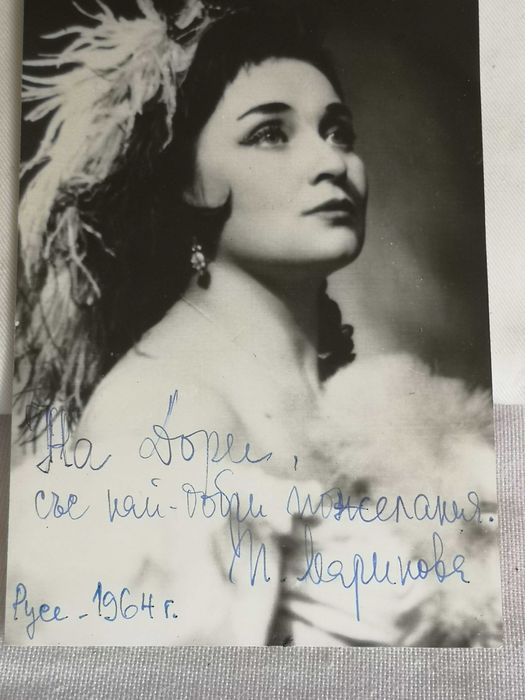 На Дори,
със най-добри пожелания.
Маринова
Русе - 1964 г.